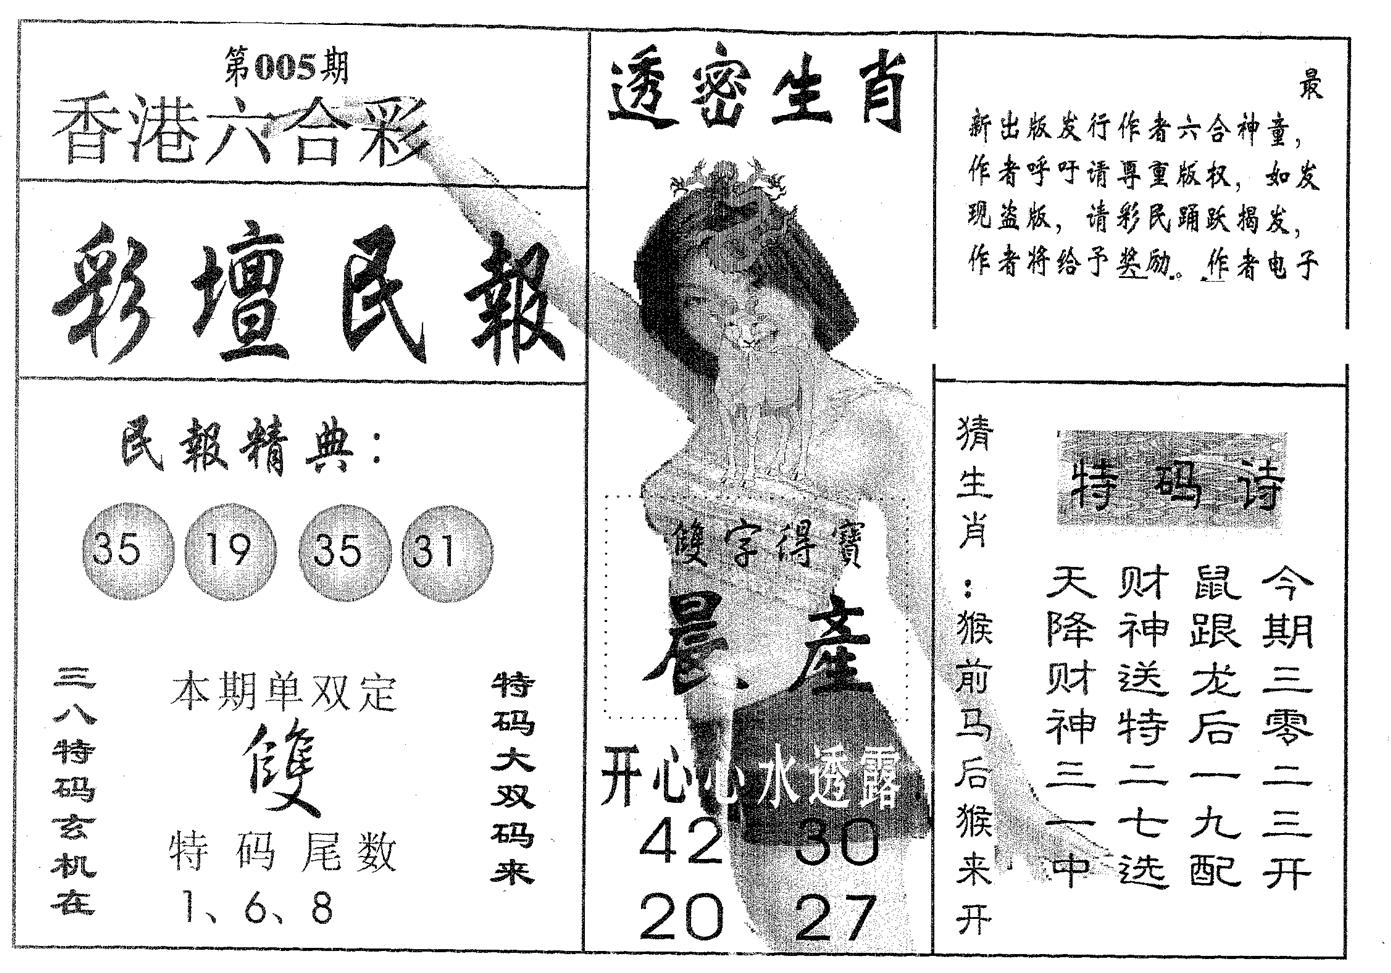 第005期
香港六合彩
彩壇民報
民報精典：
35 19 35 31
三八特码玄机在
本期单双定
雙
特码尾数
1、6、8
特码大双码来
透密生肖
雙字得寶
晨 產
开心心水透露
42 30
20 27
最
新出版发行作者六合神童，
作者呼吁请尊重版权，如发
现盗版，请彩民踊跃揭发，
作者将给予奖励。作者电子
猜生肖：猴前马后猴来开
特码诗
今期三零二三开
鼠跟龙后一九配
财神送特二七选
天降财神三一中